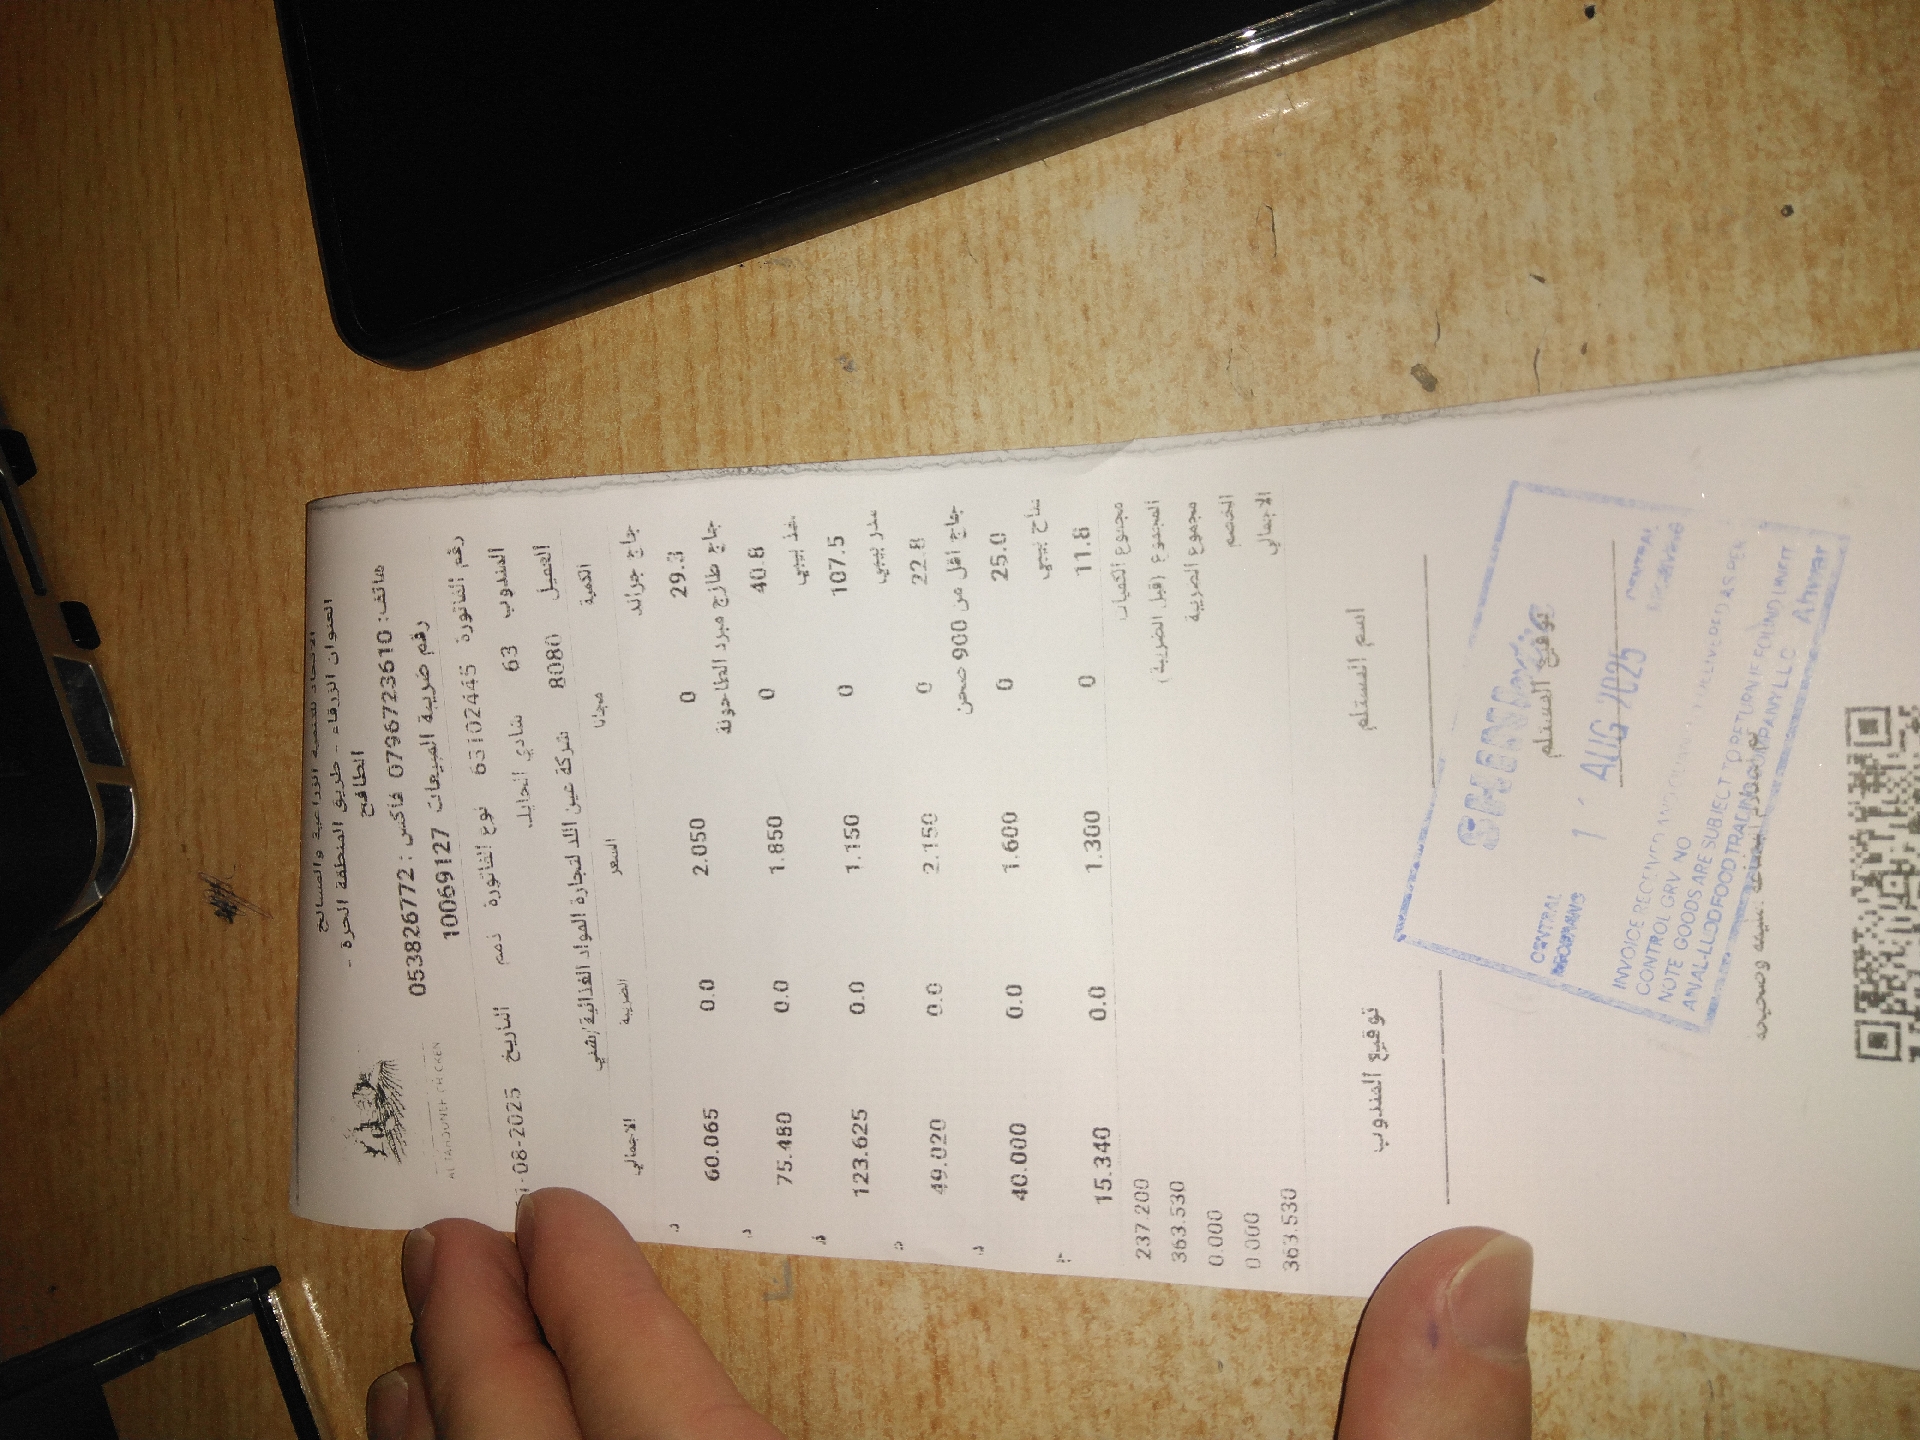 الاتحاد للتنمية الزراعية والمسالخ
العنوان الزرقاء - طريق المنطقة الحرة -
الطافح
هاتف: 0796723610 فاكس: 053826772
رقم ضريبة المبيعات 10069127
AL TAHOUNEH CHICKEN
رقم الفاتورة 63102445 نوع الفاتورة ذمم التاريخ -08-2025
المندوب 63 شادي
العميل 8080 شركة عين اللد لتجارة المواد الغذائية/
الكمية مجانا السعر الضريبة الاجمالي
29.3 0 2.050 0.0 60.065
جاج طازج مبرد الطاحونة
40.8 0 1.850 0.0 75.480
107.5 0 1.150 0.0 123.625
22.8 0 2.150 0.0 49.020
جاج اقل من 900 صحن
25.0 0 1.600 0.0 40.000
11.8 0 1.300 0.0 15.340
مجموع الكميات 237.200
المجموع (قبل الضريبة) 363.530
مجموع الضريبة 0.000
الخصم 0.000
الاجمالي 363.530
اسم المستلم توقيع المندوب
توقيع المستلم
CENTRAL
1 AUG 2025
CENTRAL
RECEIVING
INVOICE RECEIVED AND DELIVERED AS PER
CONTROL GRV NO
NOTE GOODS ARE SUBJECT TO RETURN IF FOUND UNFIT
سليمة وصحيحه